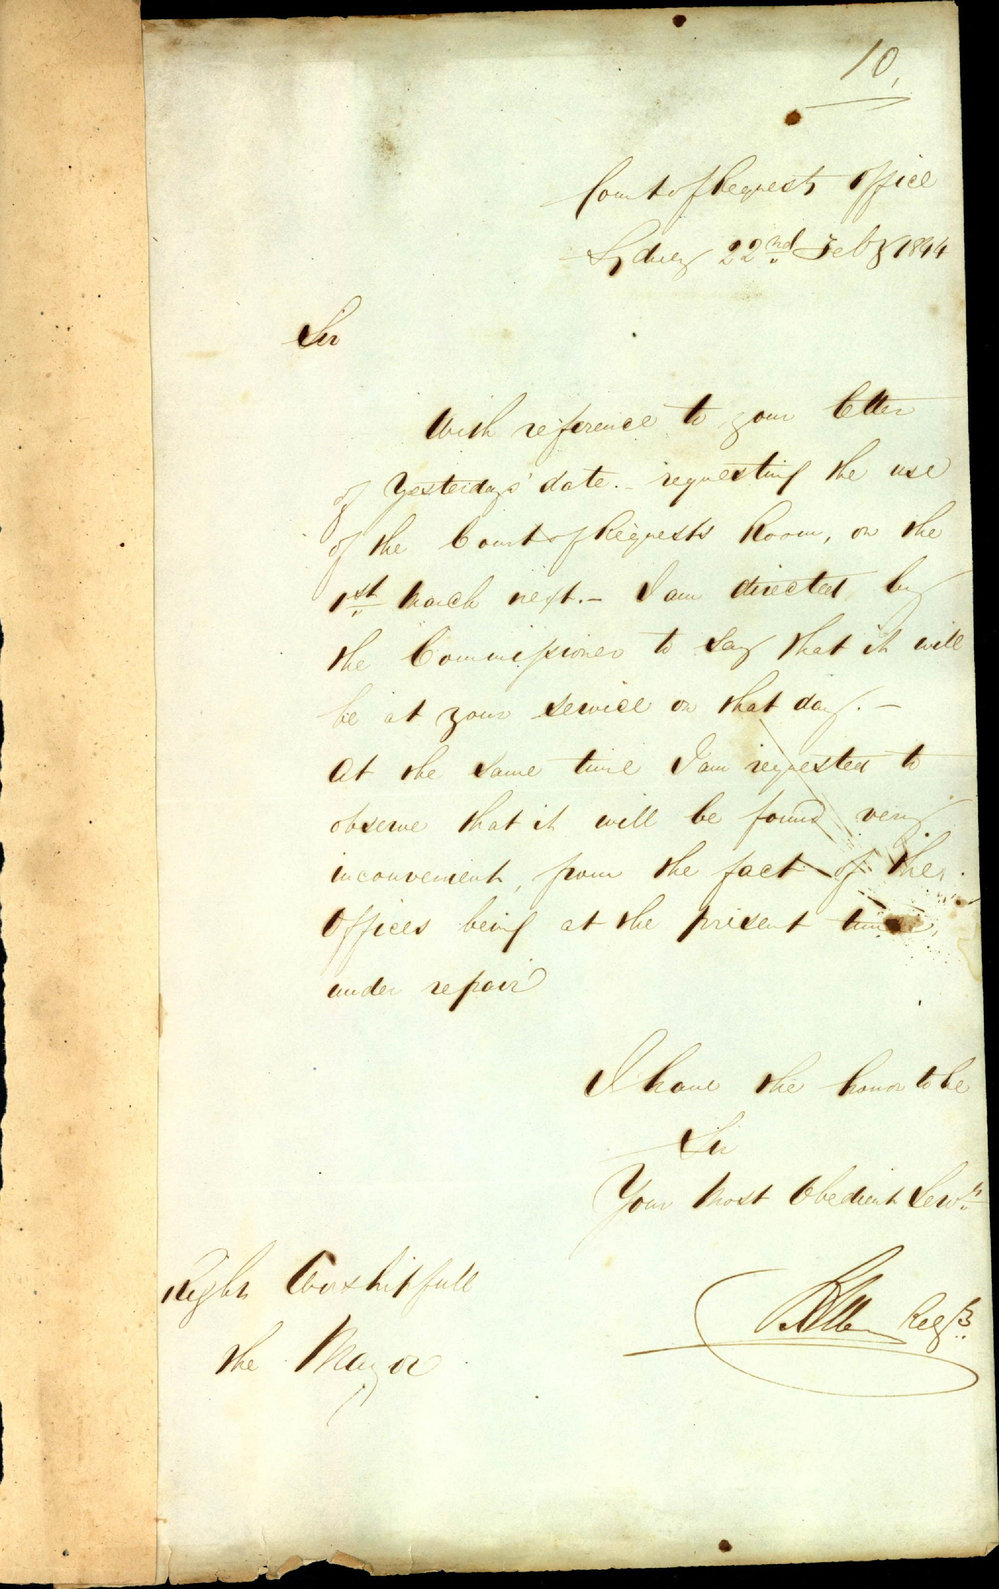 10,
Court of Requests Office
Sydney 22nd Feby 1844
Sir
With reference to your letter
of Yesterdays' date. - requesting the use
of the Court of Requests Room, on the
1st March next. - I am directed by
the Commissioner to say that it will
be at your service on that day. -
At the same time I am requested to
observe that it will be found very
inconvenient, from the fact of the
Offices being at the present time,
under repair
I have the honor to be
Sir
Your Most Obedient Servt
Regr
Right Worshipfull
the Mayor